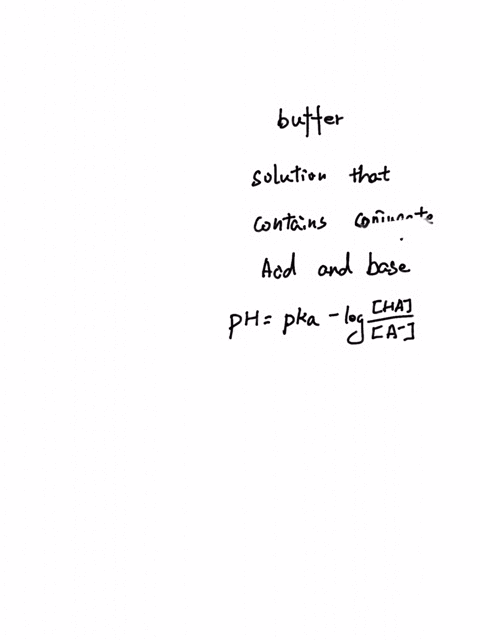 buffer
solution that
contains
Acid and base
pH = pka - log [HA]/[A⁻]